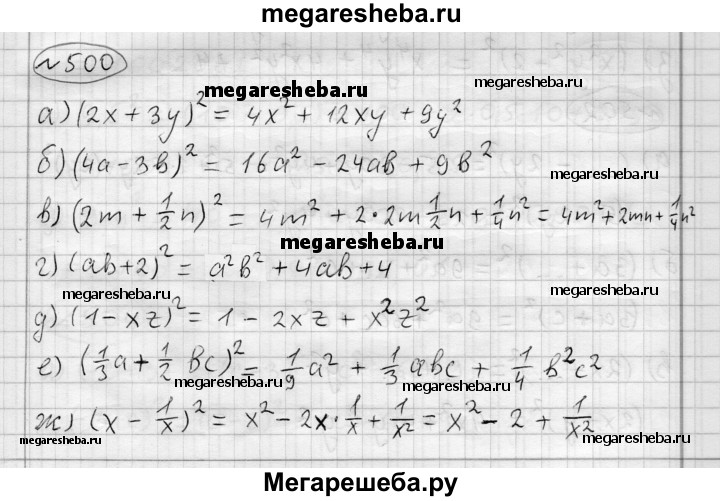 megaresheba.ru
№500
megaresheba.ru megaresheba.ru
а) (2x + 3y)² = 4x² + 12xy + 9y²
б) (4a - 3b)² = 16a² - 24ab + 9b²
megaresheba.ru
в) (2m + 1/2 n)² = 4m² + 2·2m 1/2 n + 1/4 n² = 4m² + 2mn + 1/4 n²
megaresheba.ru
г) (ab + 2)² = a²b² + 4ab + 4
megaresheba.ru megaresheba.ru
д) (1 - xz)² = 1 - 2xz + x²z²
е) (1/3 a + 1/2 bc)² = 1/9 a² + 1/3 abc + 1/4 b²c²
megaresheba.ru megaresheba.ru
ж) (x - 1/x)² = x² - 2x · 1/x + 1/x² = x² - 2 + 1/x²
megaresheba.ru megaresheba.ru
Мегарешеба.ру